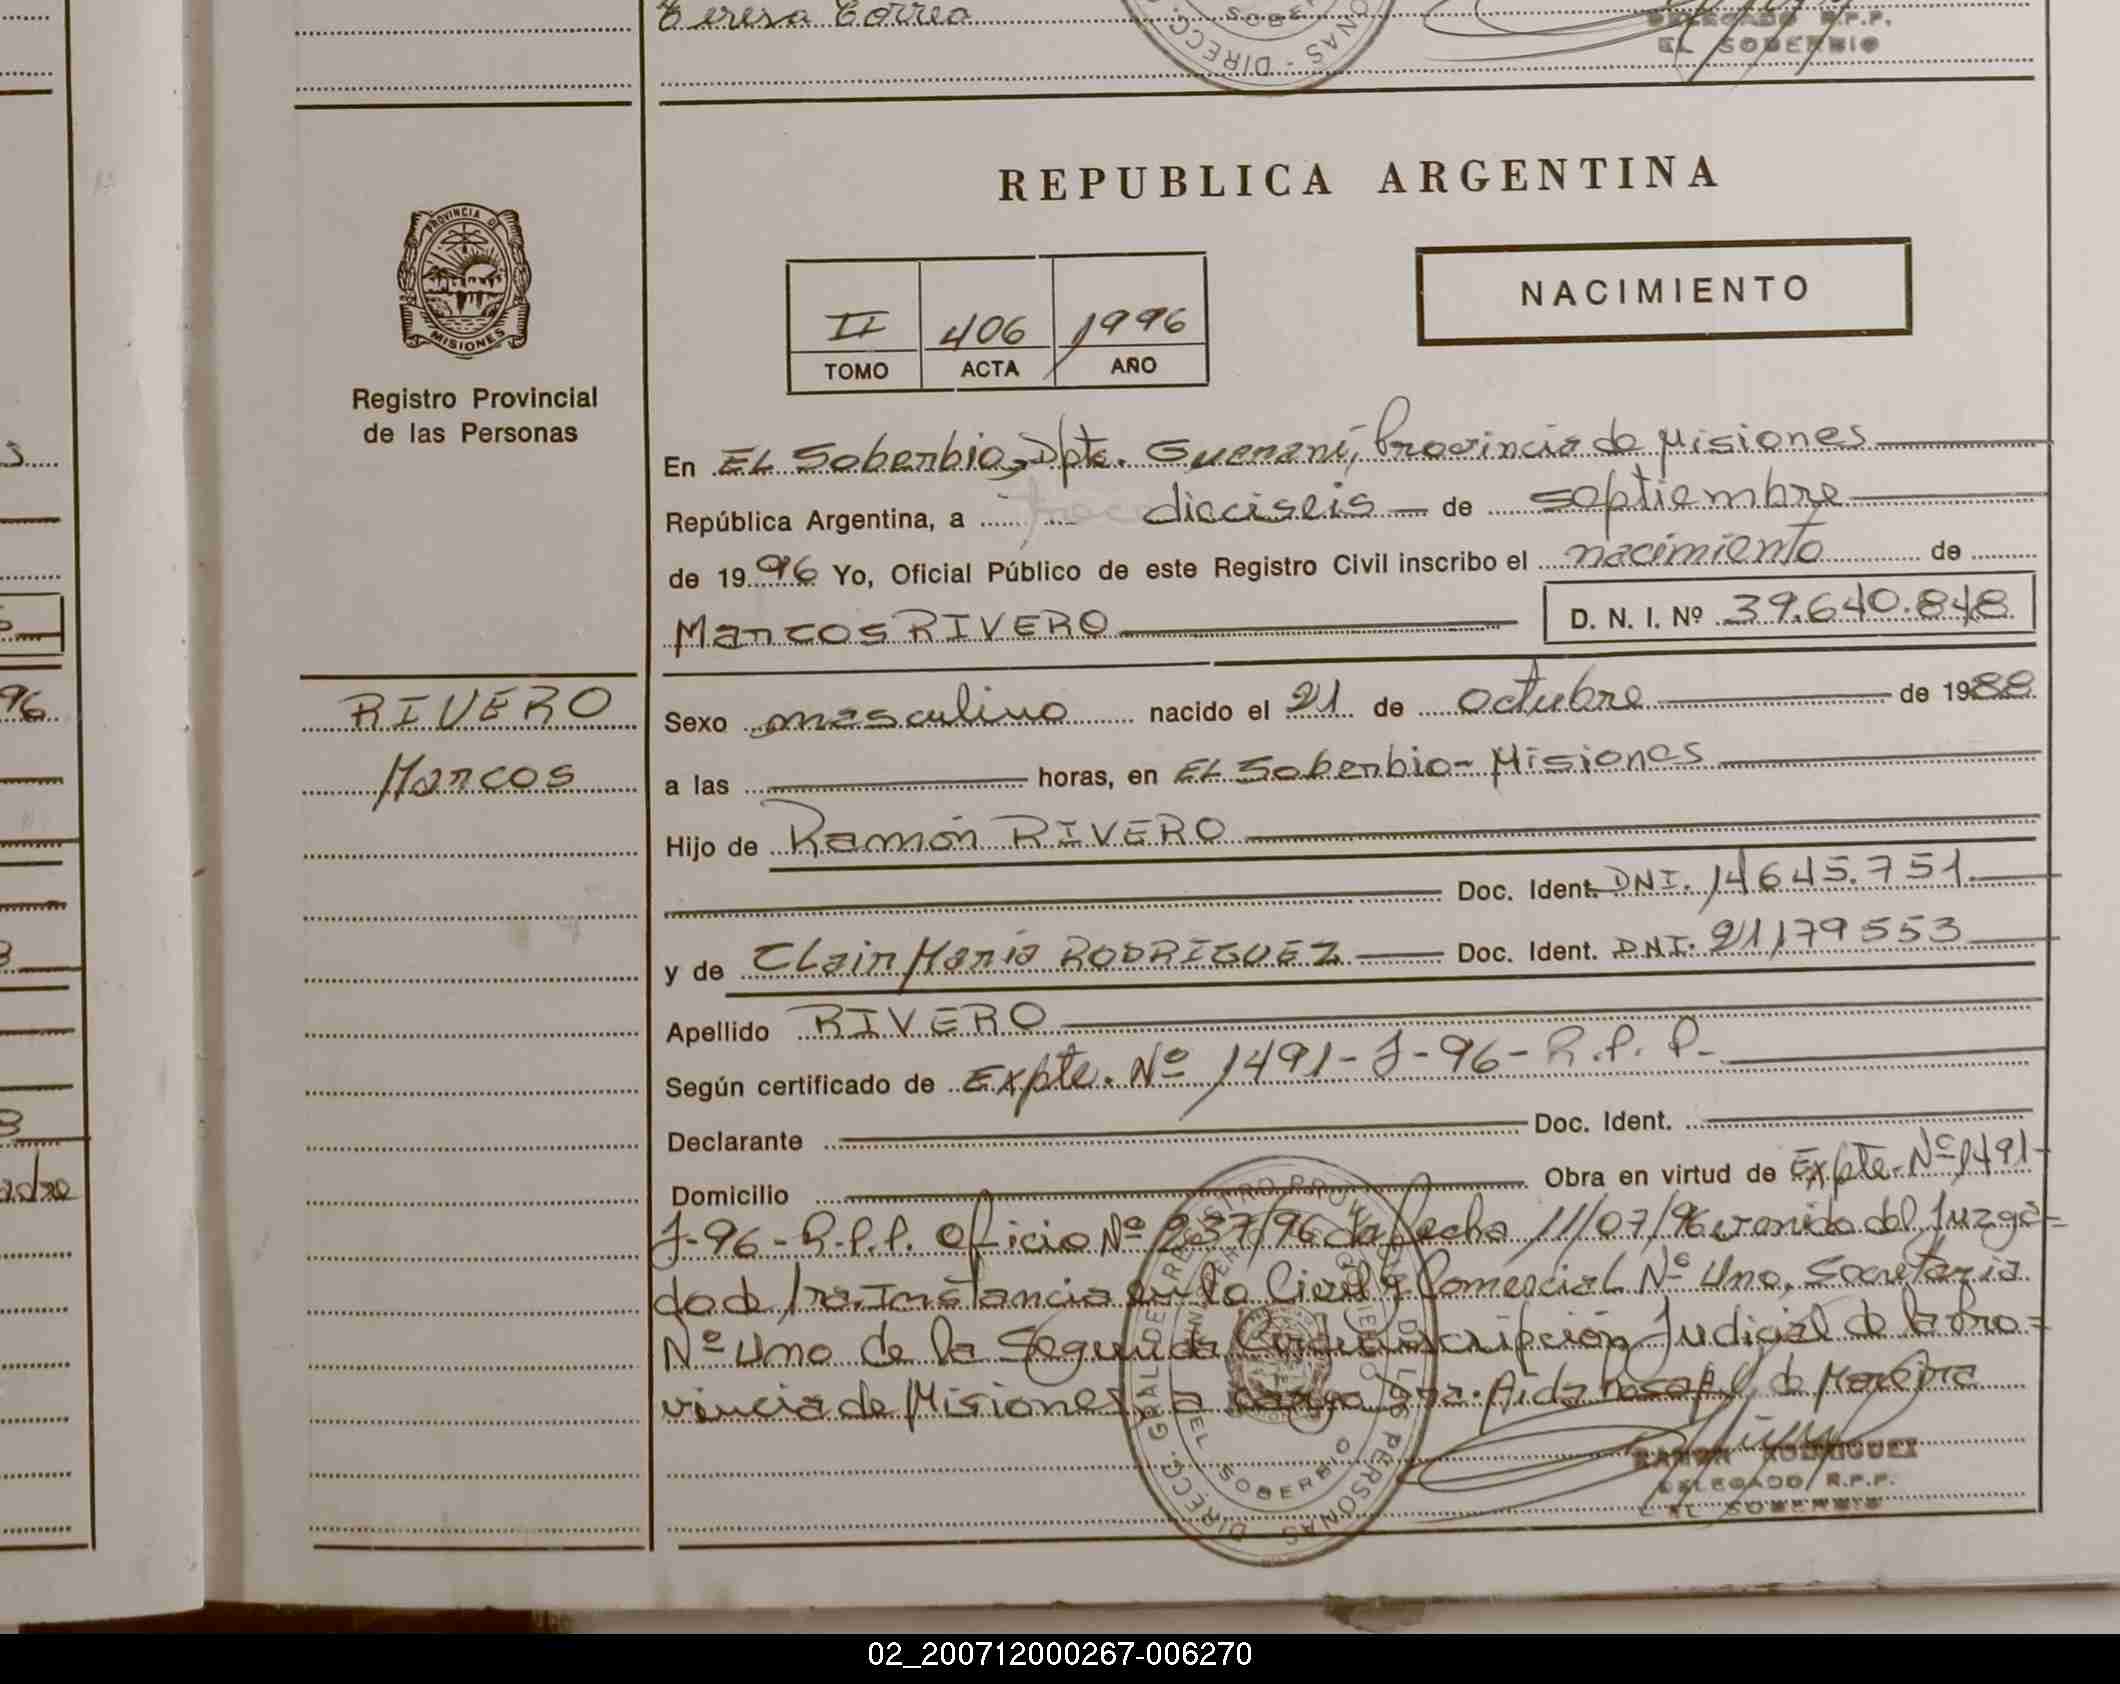 Teresa Correa
SOBE
NAS - DIRECC
DELEGADO R.P.P.
EL SOBERBIO
REPUBLICA ARGENTINA
PROVINCIA DE
MISIONES
Registro Provincial
de las Personas
II 406 1996
TOMO ACTA AÑO
NACIMIENTO
En EL Soberbio, Dpto. Guaraní, Provincia de Misiones
República Argentina, a dieciseis de septiembre
de 1996 Yo, Oficial Público de este Registro Civil inscribo el nacimiento de
Marcos RIVERO D. N. I. Nº 39.640.848
RIVERO
Marcos
Sexo masculino nacido el 21 de octubre de 1988
a las horas, en EL Soberbio - Misiones
Hijo de Ramón RIVERO
Doc. Ident. DNI. 14645.751
y de Clair María RODRIGUEZ Doc. Ident. DNI. 21179553
Apellido RIVERO
Según certificado de Expte. Nº 1491-J-96-R.P.P.
Declarante Doc. Ident.
Domicilio Obra en virtud de Expte. Nº 1491-
J-96-R.P.P. Oficio Nº 237/96 de fecha 11/07/96 venido del Juzga-
do de 1ra. Instancia en lo Civil y Comercial Nº Uno, Secretaria
Nº Uno de la Segunda Circunscripción Judicial de la Pro-
vincia de Misiones, a cargo Dra. Aida
RAMON RODRIGUEZ
DELEGADO R.P.P.
EL SOBERBIO
DIRECC. GRAL DE REGISTRO PROV. DE LAS PERSONAS
EL SOBERBIO
96
adre
02_200712000267-006270